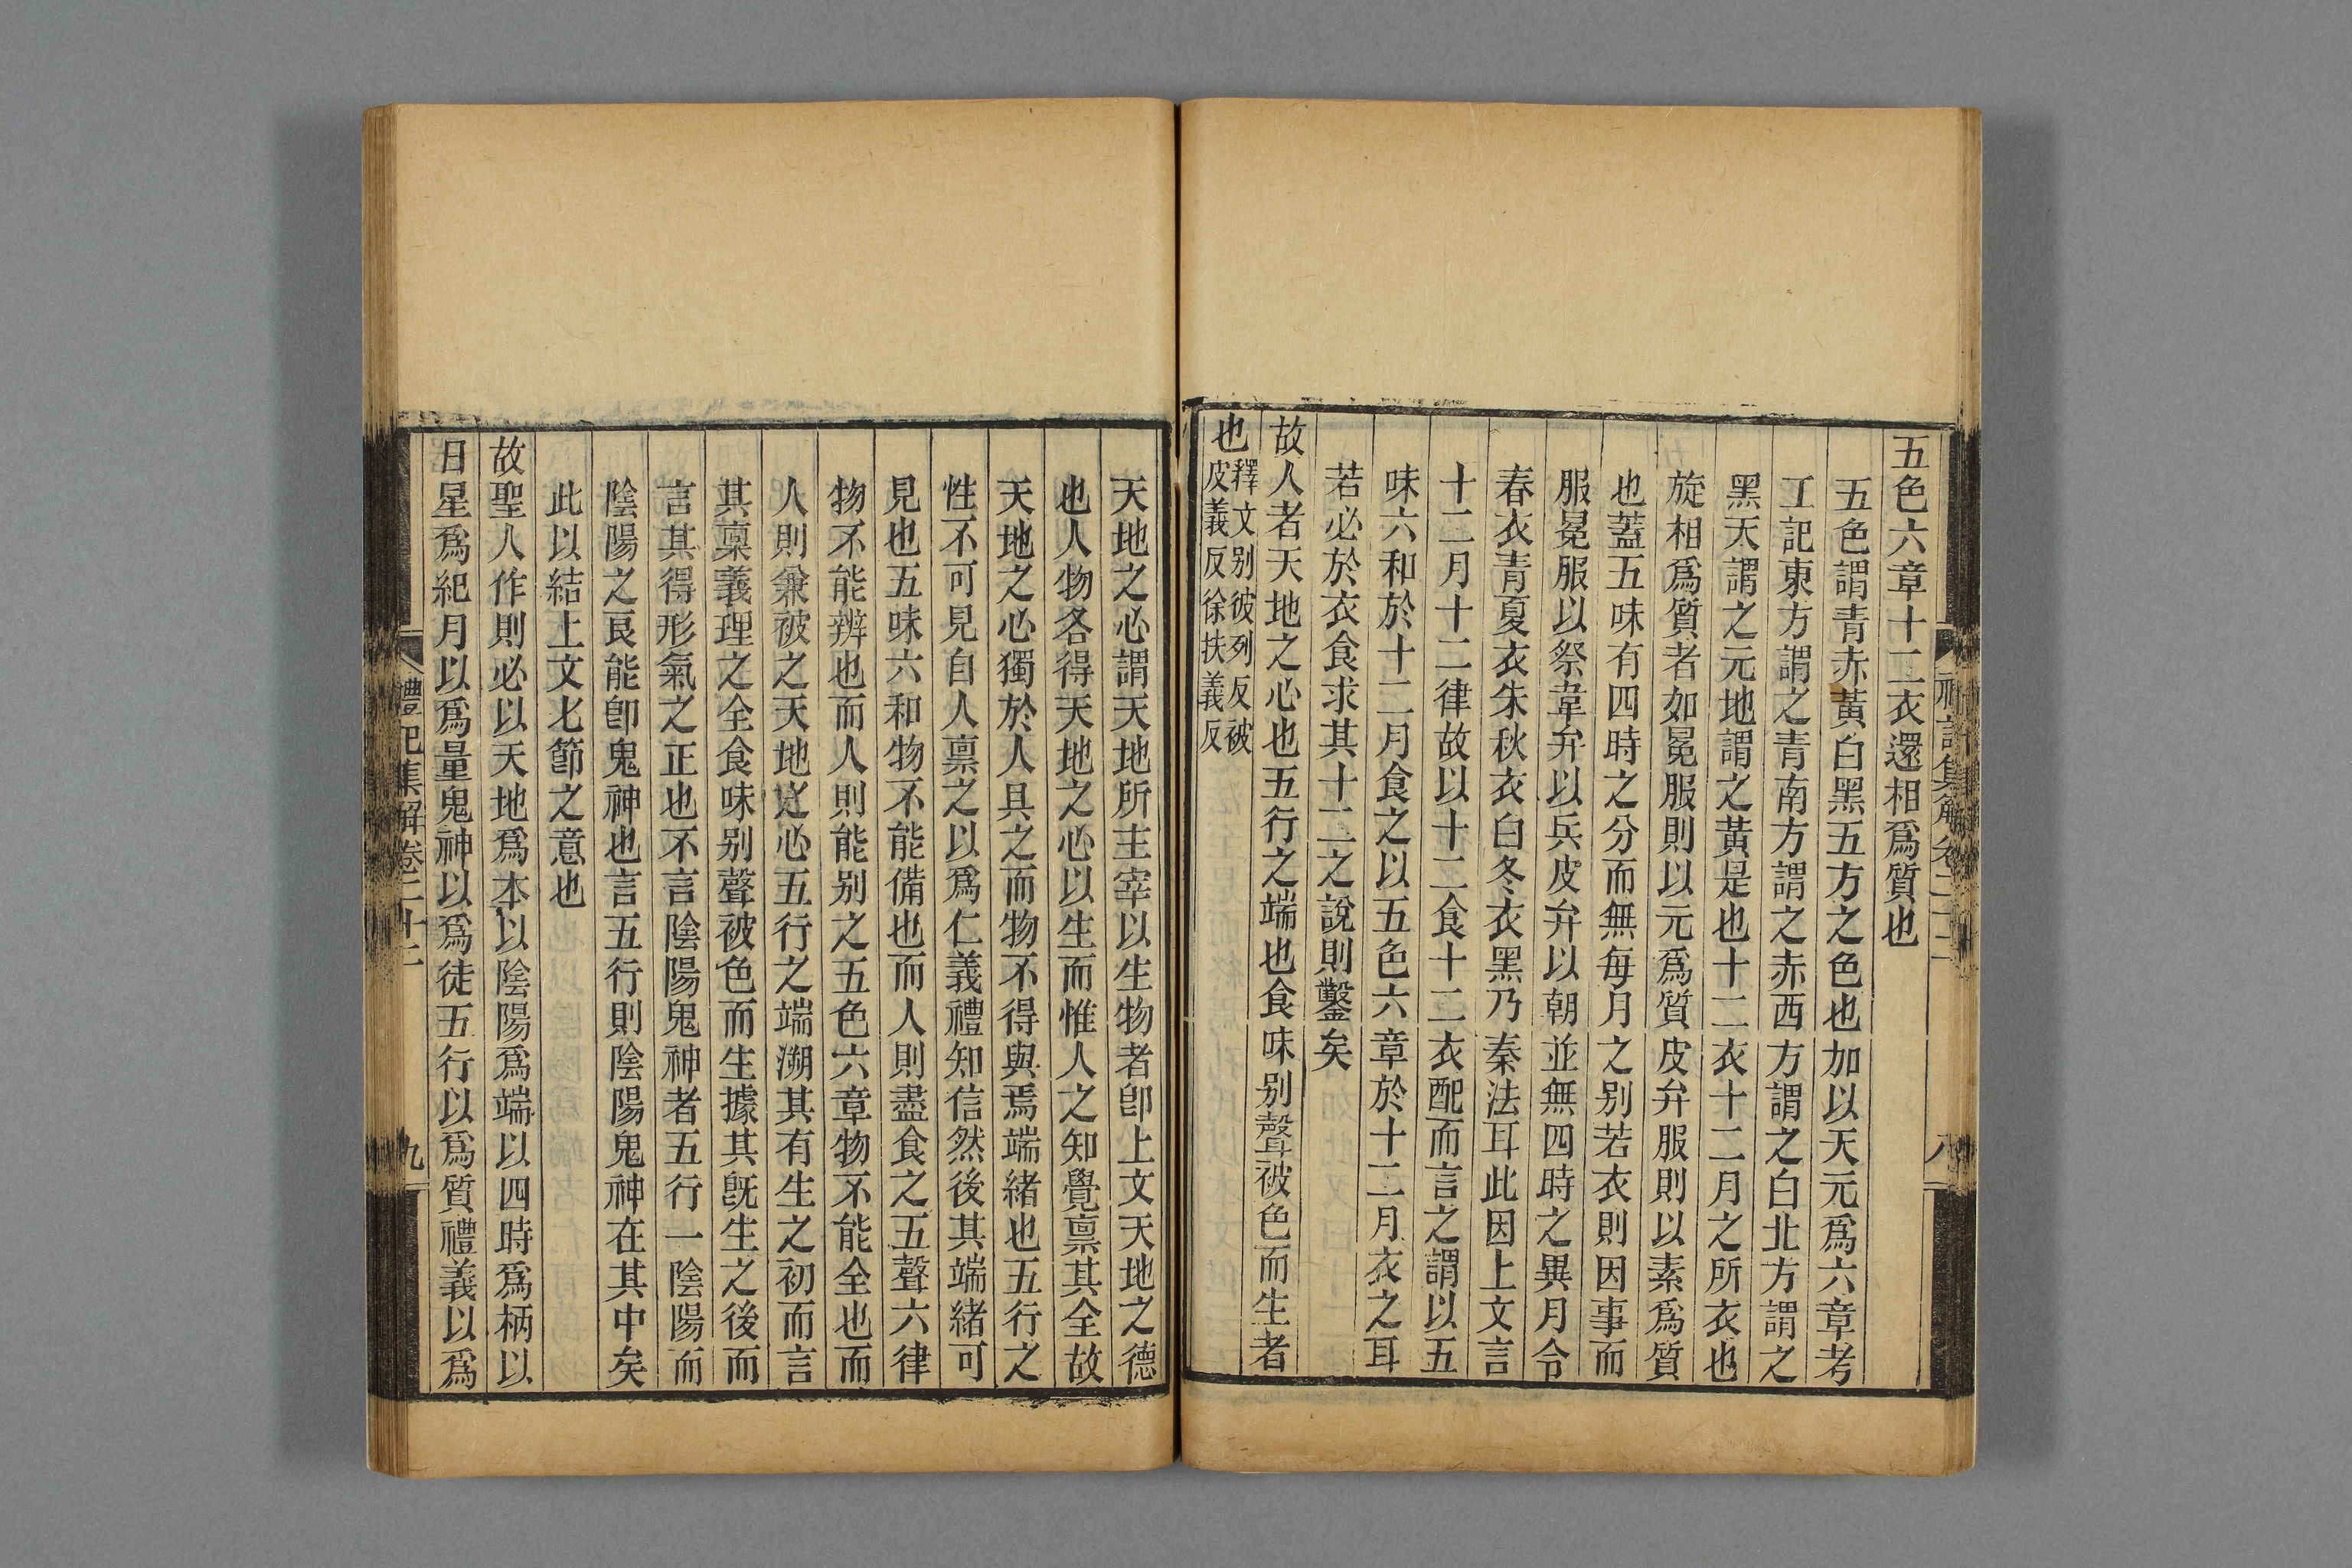 五色六章十二衣還相爲質也
五色謂青赤黃白黑五方之色也加以天元爲六章考
工記東方謂之青南方謂之赤西方謂之白北方謂之
黑天謂之元地謂之黃是也十二衣十二月之所衣也
旋相爲質者如冕服則以元爲質皮弁服則以素爲質
也蓋五味有四時之分而無每月之别若衣則因事而
服冕服以祭韋弁以兵皮弁以朝並無四時之異月令
春衣青夏衣朱秋衣白冬衣黑乃秦法耳此因上文言
十二月十二律故以十二食十二衣配而言之謂以五
味六和於十二月食之以五色六章於十二月衣之耳
若必於衣食求其十二之說則鑿矣
故人者天地之心也五行之端也食味别聲被色而生者
也釋文别彼列反被
皮義反徐扶義反
天地之心謂天地所主宰以生物者卽上文天地之德
也人物各得天地之心以生而惟人之知覺禀其全故
天地之心獨於人具之而物不得與焉端緒也五行之
性不可見自人禀之以爲仁義禮知信然後其端緒可
見也五味六和物不能備也而人則盡食之五聲六律
物不能辨也而人則能别之五色六章物不能全也而
人則兼被之天地之心五行之端溯其有生之初而言
其禀義理之全食味别聲被色而生據其旣生之後而
言其得形氣之正也不言陰陽鬼神者五行一陰陽而
陰陽之良能卽鬼神也言五行則陰陽鬼神在其中矣
此以結上文七節之意也
故聖人作則必以天地爲本以陰陽爲端以四時爲柄以
日星爲紀月以爲量鬼神以爲徒五行以爲質禮義以爲
禮記集解卷二十二
九